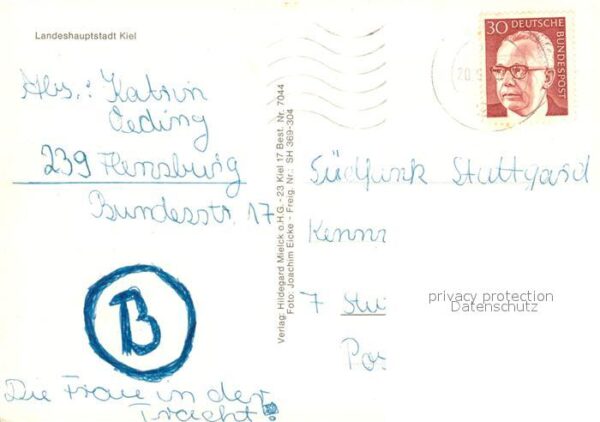 Landeshauptstadt Kiel
Abs.: Katrin
Oeding
239 Flensburg
Bundesstr. 17
B
Die Frau in der
Tracht!
Verlag: Hildegard Mielck o.H.G. - 23 Kiel 17 Best. Nr. 7044
Foto: Joachim Eicke - Freig. Nr.: SH 369-304
30 DEUTSCHE
BUNDESPOST
20.
Südfunk Stuttgard
Kenn
7 Stu
Pos
privacy protection
Datenschutz